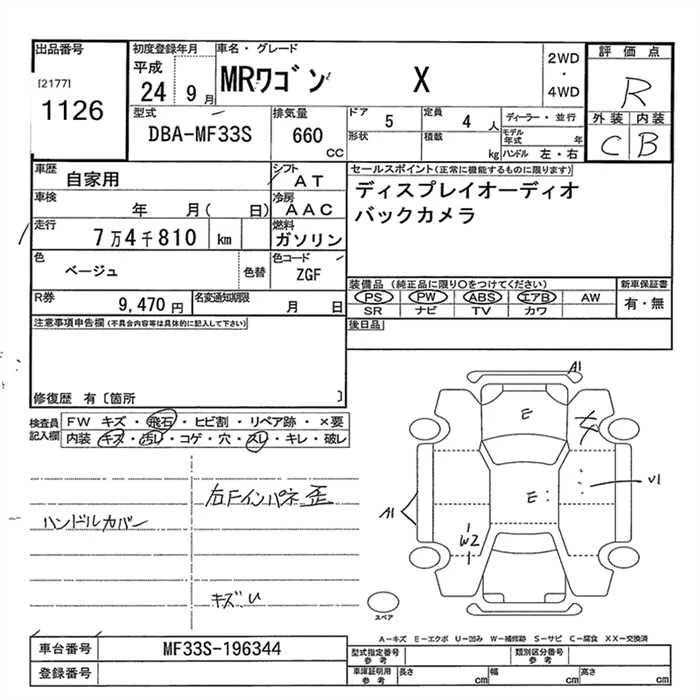 出品番号
[2177]
1126
初度登録年月
平成
24 9月
車名・グレード
MRワゴン X
2WD
・
4WD
評価点
R
外装 内装
C B
型式
DBA-MF33S
排気量
660
CC
ドア 5
定員 4 人
形状
積載
kg
ディーラー・並行
モデル年式 年
ハンドル 左・右
車歴
自家用
シフト
AT
車検
年 月( 日)
冷房
AAC
走行
7万4千810 km
燃料
ガソリン
色
ベージュ
色替
色コード
ZGF
R券
9,470円
名変通知期限
月 日
セールスポイント(正常に機能するものに限ります)
ディスプレイオーディオ
バックカメラ
装備品(純正品に限り〇をつけてください)
新車保証書
PS PW ABS エアB AW
有・無
SR ナビ TV カワ
後日品
注意事項申告欄(不具合内容等は具体的に記入して下さい)
修復歴 有〔箇所 〕
検査員
記入欄
FW キズ・飛石・ヒビ割・リペア跡・×要
内装 キズ・汚レ・コゲ・穴・スレ・キレ・破レ
右Fインパネ歪
ハンドルカバー
キズU
A1
E
E
U1
A1
W2
スペア
A−キズ E−エクボ U−凹み W−補修跡 S−サビ C−腐食 XX−交換済
車台番号
MF33S-196344
登録番号
型式指定番号
参考
類別区分番号
参考
車庫証明用
参考
長さ cm
幅 cm
高さ cm